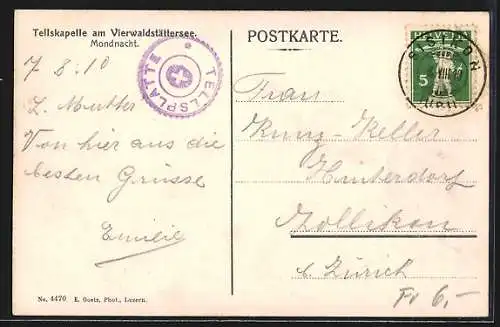 Tellskapelle am Vierwaldstättersee.
Mondnacht.
7 8.10
L. Mutter
Von hier aus die
besten Grüsse
Emilie
No. 4470 E. Goetz, Phot., Luzern.
TELLSPLATTE
POSTKARTE.
HELVETIA
5
SISIKON
VIII.10
(URI)
Frau
Kunz-Keller
Hinterdorf
Zollikon
b. Zürich
Fr 6,-